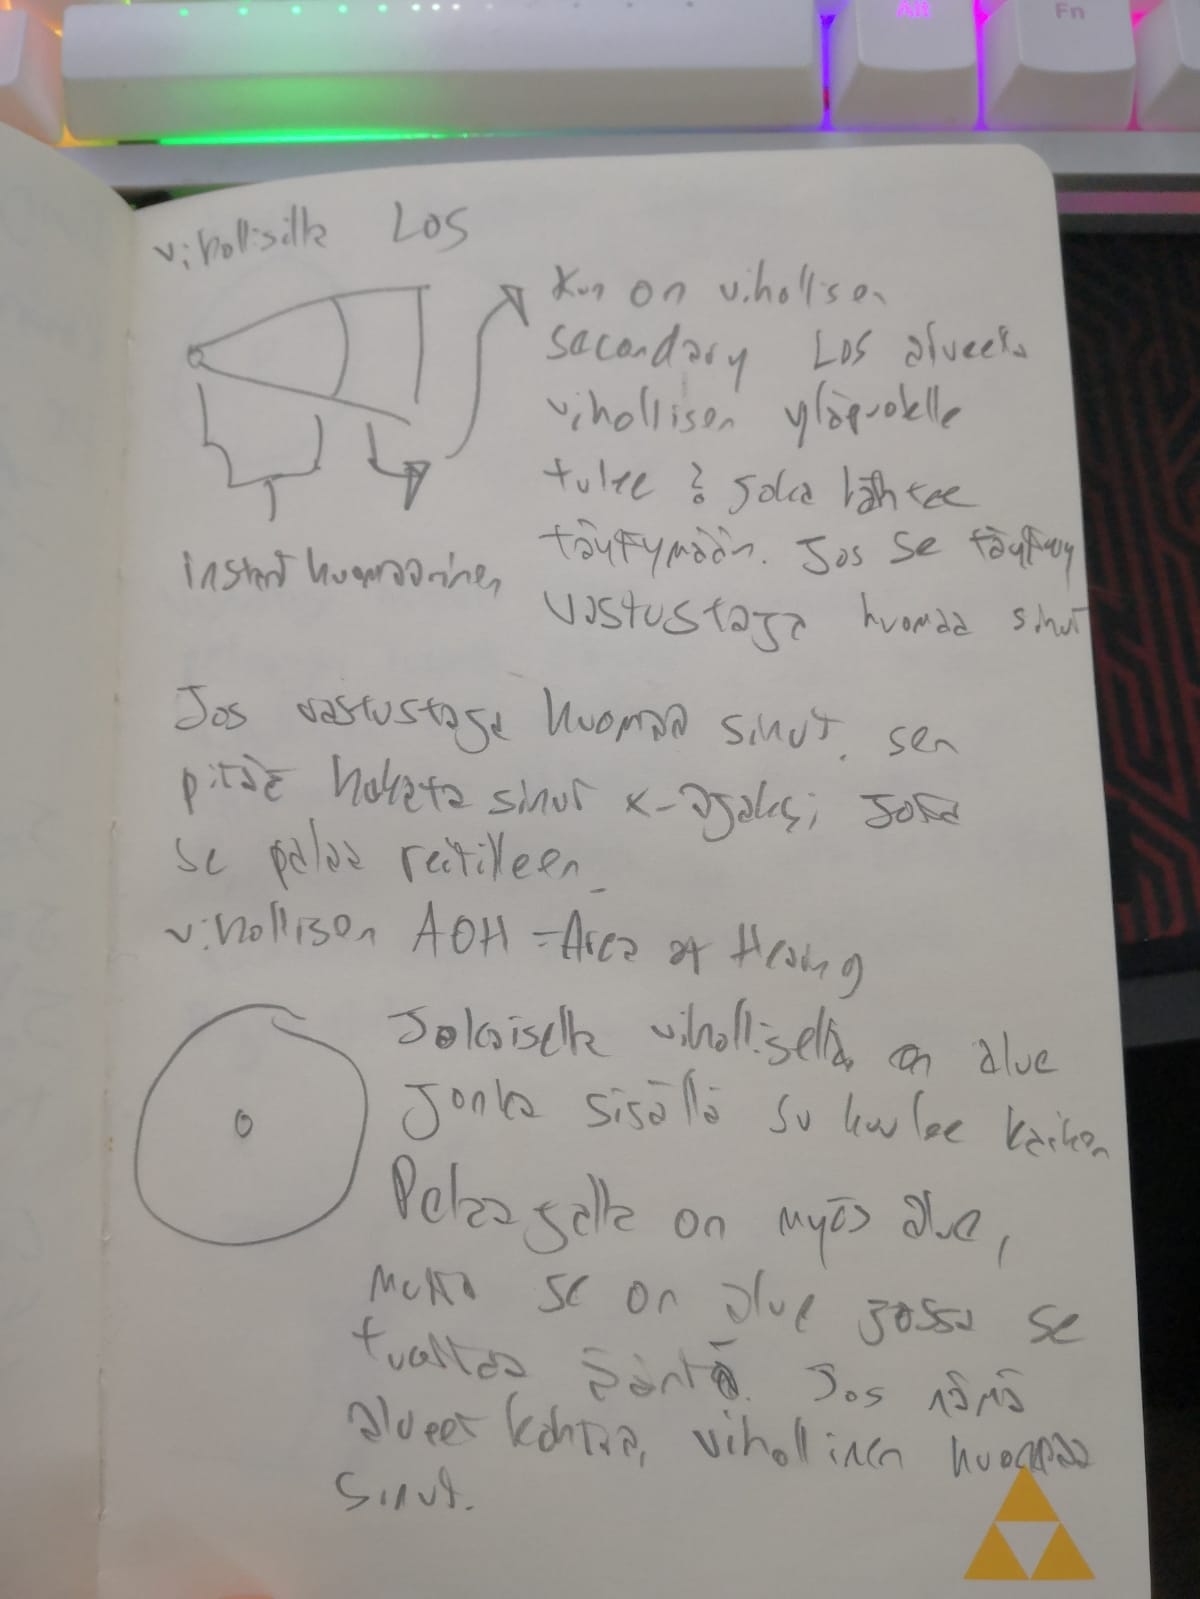 Alt
Fn
vihollisilla LOS
Kun on vihollisen
secondary LOS alueella
vihollisen yläpuolelle
tulee ? joka lähtee
täyttymään. Jos se täyttyy
vastustaja huomaa sinut
instant huomaaminen
Jos vastustaja huomaa sinut, sen
pitää hukata sinut x-ajaksi, jotta
se palaa reitilleen
vihollisen AOH = Area of Hearing
Jokaisella vihollisella on alue
jonka sisällä se kuulee kaiken
Pelaajalla on myös alue,
mutta se on alue jossa se
tuottaa ääntä. Jos nämä
alueet kohtaa, vihollinen huomaa
sinut.